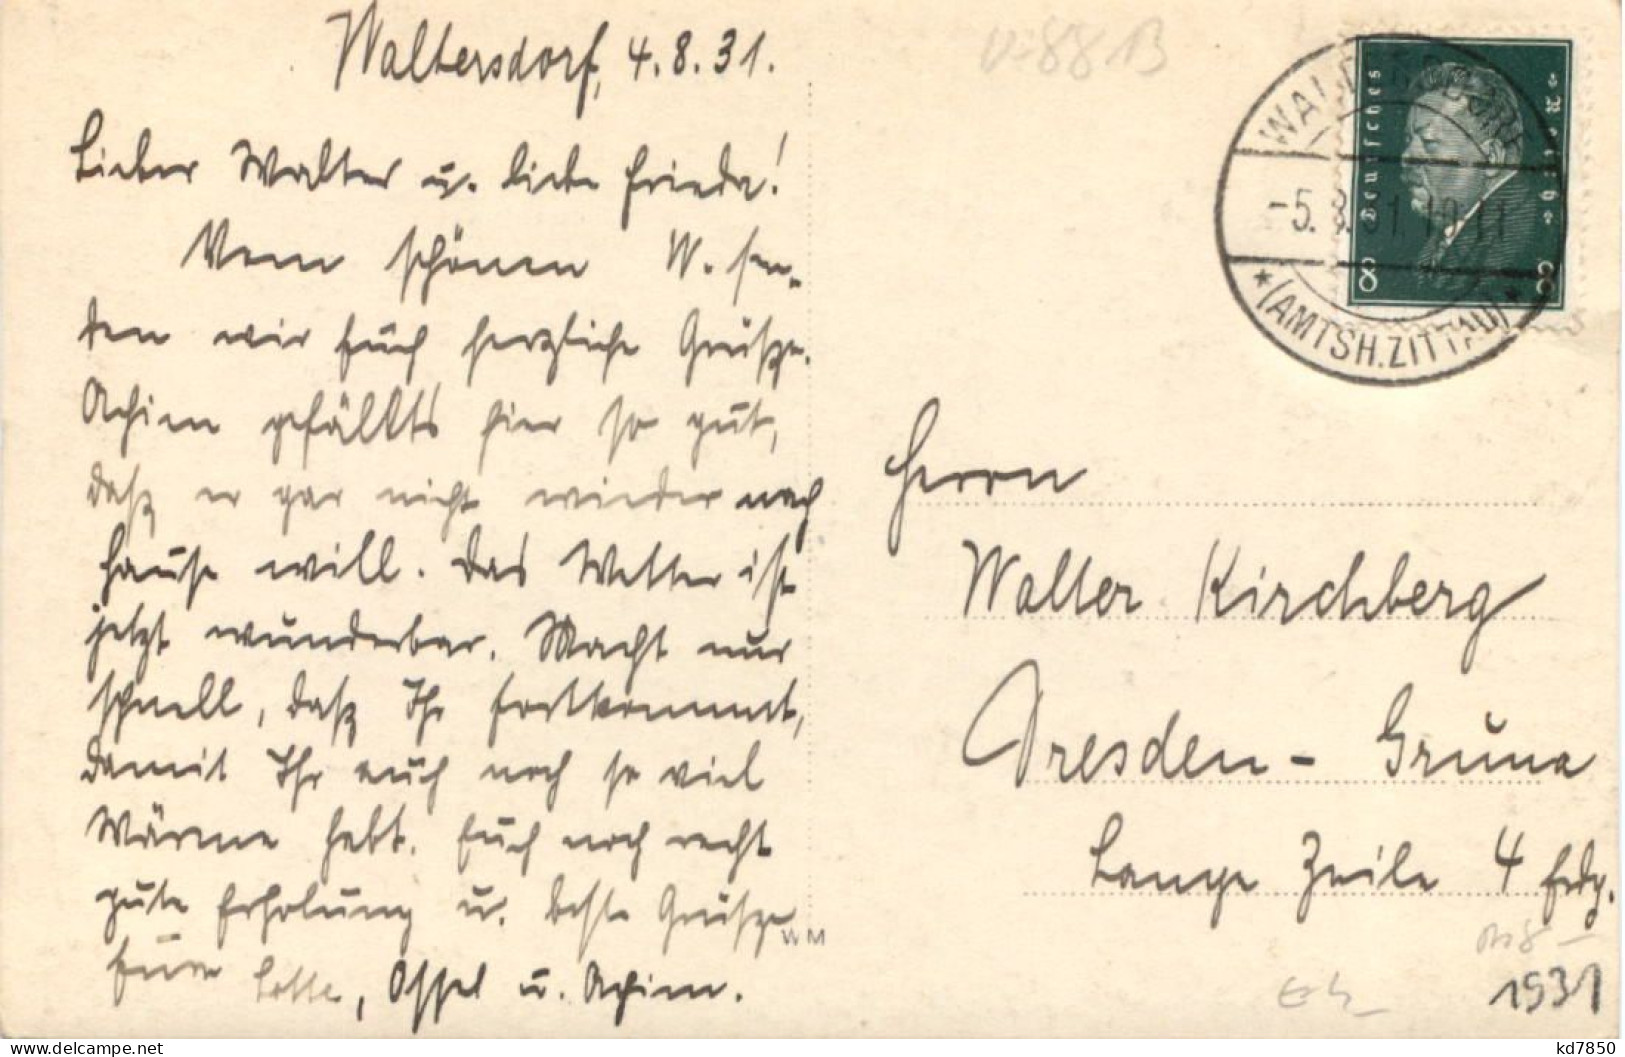 Waltersdorf, 4.8.31.
Lieber Walter u. liebe Frieda!
Vom schönen W. sen-
den wir Euch herzliche Grüße.
Achim gefällts hier so gut,
daß er gar nicht wieder nach
Hause will. Das Wetter ist
jetzt wunderbar. Macht nur
schnell, daß Ihr fortkommt,
damit Ihr auch noch so viel
Wärme habt. Euch noch recht
gute Erholung u. beste Grüße
Eure Lotte, Ossel u. Achim.
WM
V-88 13
Deutsches Reich
8 8
WALTERSDORF
-5.8.31.10-11
*(AMTSH.ZITTAU)*
Herrn
Walter Kirchberg
Dresden - Gruna
Lange Zeile 4 Erdg.
1931
kd7850
https://www.delcampe.net